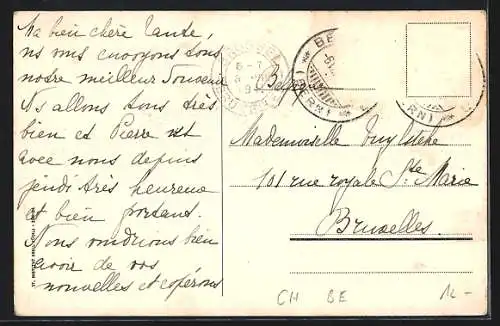 Ma bien chère Tante,
ns vous envoyons tous
notre meilleur Souvenir
Ns allons tous très
bien et Pierre est
avec nous depuis
jeudi très heureux
et bien portant.
Nous voudrions bien
avoir de vos
nouvelles et espérons
6-7
BE
(BERN)
Mademoiselle
101 rue royale Ste Marie
Bruxelles.
CH BE
12-